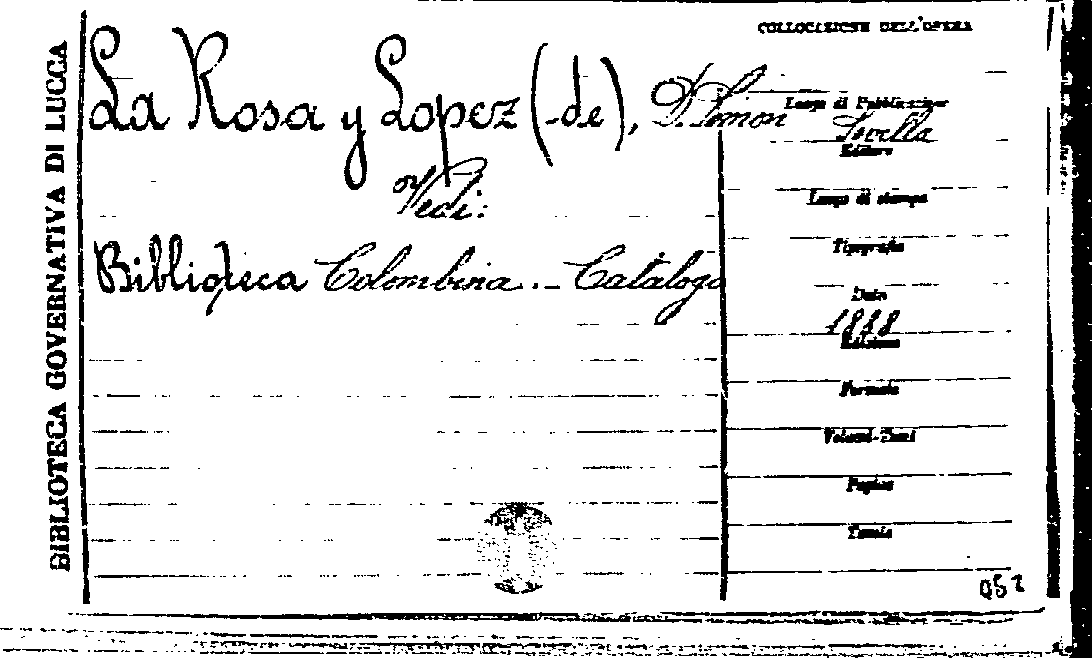 BIBLIOTECA GOVERNATIVA DI LUCCA
COLLOCAZIONE DELL'OPERA
La Rosa y Lopez (de), D. Simon
Vedi:
Biblioteca Colombina.. - Catalogo
Luogo di Pubblicazione
Sevilla
Editore
Luogo di stampa
Tipografia
Data
1888
Edizione
Formato
Volumi-Tomi
Pagine
Tavole
052